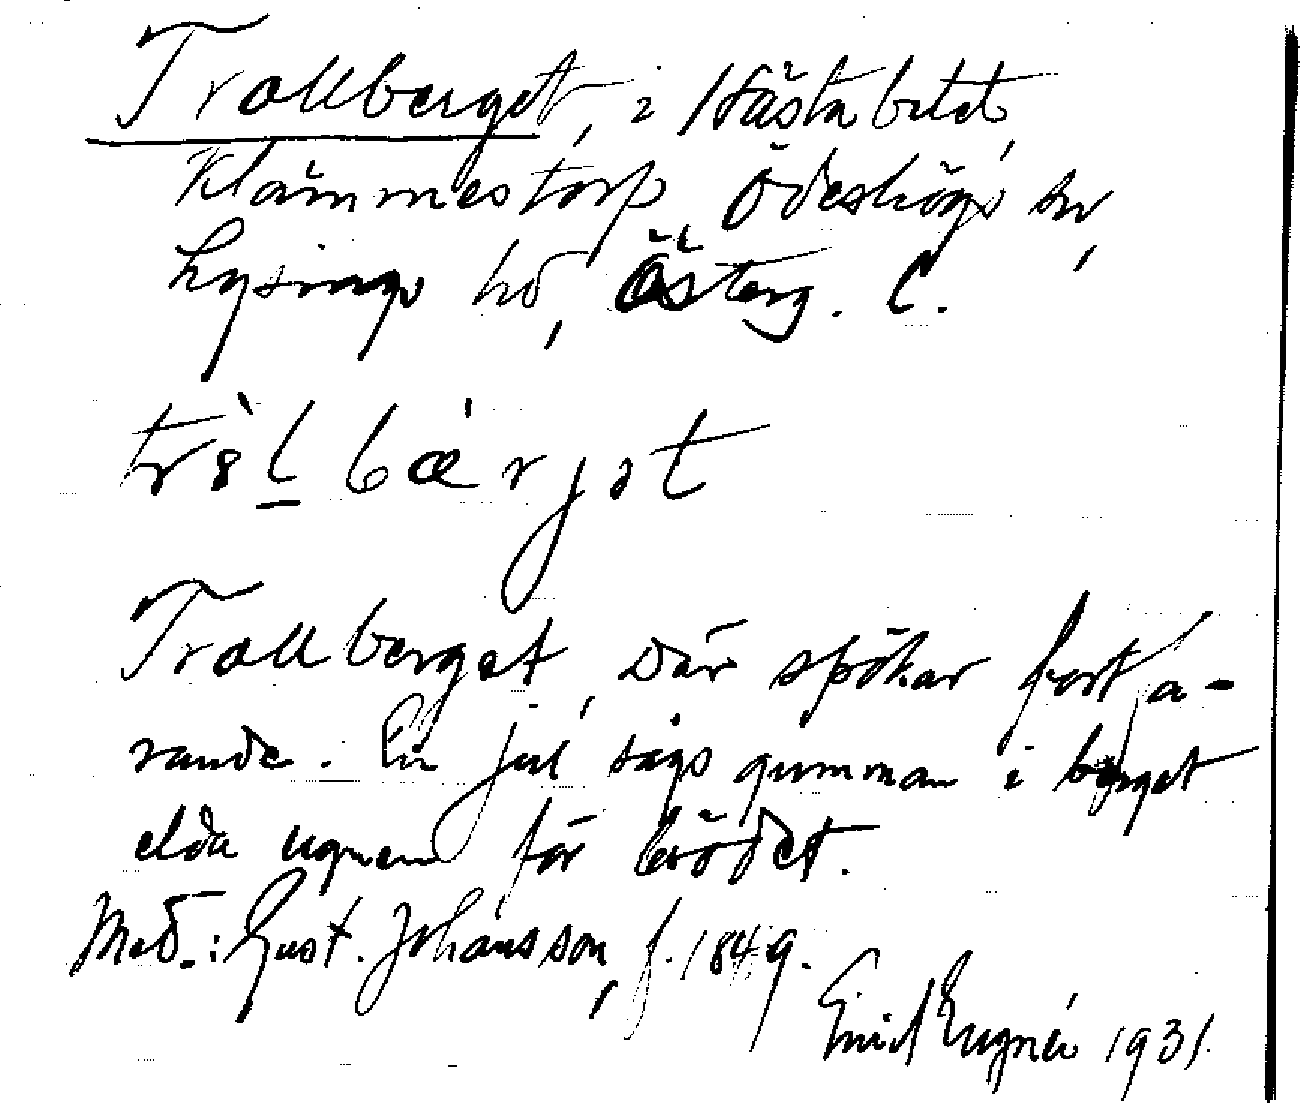 Trollberget, i Hästabetet,
Klämmestorp, Ödeshögs sn,
Lysings hd, Österg. C.
tr8̀l bæ̀rjət
Trollberget, där spökar fortfa-
rande. En jul sågs gumman i berget
elda ugnen för brödet.
Med.: Gust. Johansson, f. 1849.
Emil Engnér 1931.